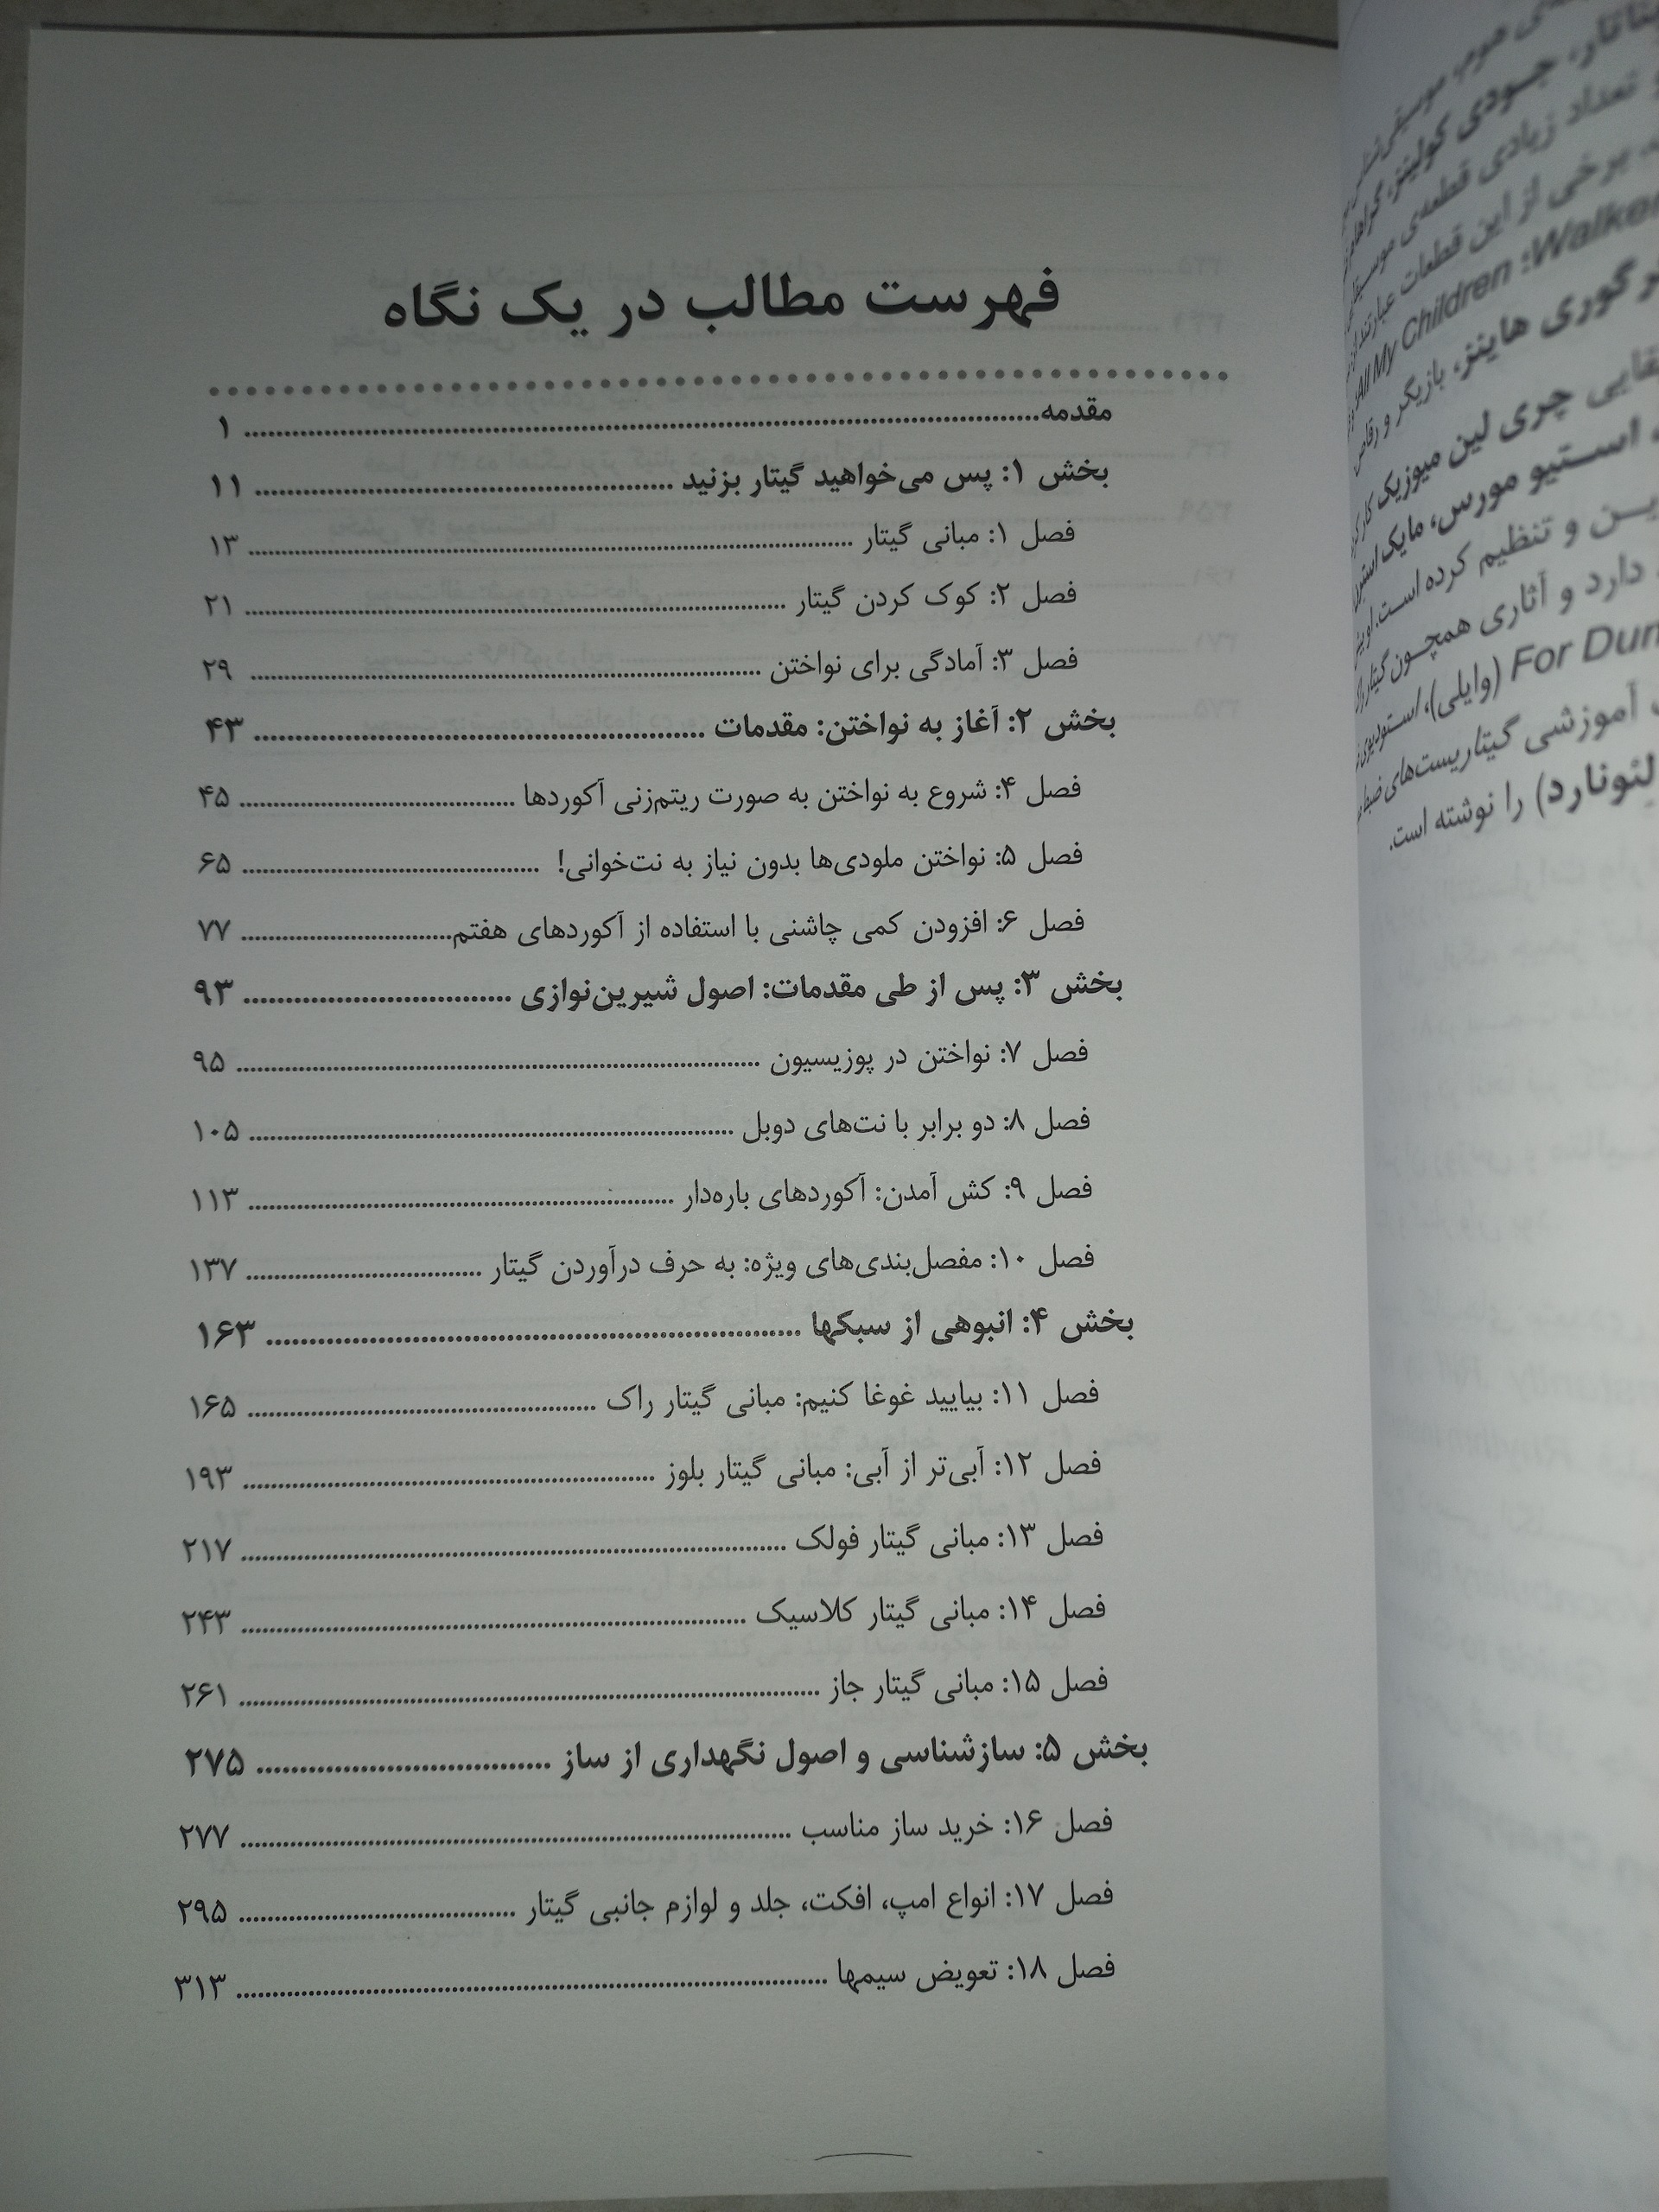 فهرست مطالب در یک نگاه
مقدمه ۱
بخش ۱: پس می‌خواهید گیتار بزنید ۱۱
فصل ۱: مبانی گیتار ۱۳
فصل ۲: کوک کردن گیتار ۲۱
فصل ۳: آمادگی برای نواختن ۲۹
بخش ۲: آغاز به نواختن: مقدمات ۴۳
فصل ۴: شروع به نواختن به صورت ریتم‌زنی آکوردها ۴۵
فصل ۵: نواختن ملودی‌ها بدون نیاز به نت‌خوانی! ۶۵
فصل ۶: افزودن کمی چاشنی با استفاده از آکوردهای هفتم ۷۷
بخش ۳: پس از طی مقدمات: اصول شیرین‌نوازی ۹۳
فصل ۷: نواختن در پوزیسیون ۹۵
فصل ۸: دو برابر با نت‌های دوبل ۱۰۵
فصل ۹: کش آمدن: آکوردهای باره‌دار ۱۱۳
فصل ۱۰: مفصل‌بندی‌های ویژه: به حرف درآوردن گیتار ۱۳۷
بخش ۴: انبوهی از سبکها ۱۶۳
فصل ۱۱: بیایید غوغا کنیم: مبانی گیتار راک ۱۶۵
فصل ۱۲: آبی‌تر از آبی: مبانی گیتار بلوز ۱۹۳
فصل ۱۳: مبانی گیتار فولک ۲۱۷
فصل ۱۴: مبانی گیتار کلاسیک ۲۴۳
فصل ۱۵: مبانی گیتار جاز ۲۶۱
بخش ۵: سازشناسی و اصول نگهداری از ساز ۲۷۵
فصل ۱۶: خرید ساز مناسب ۲۷۷
فصل ۱۷: انواع امپ، افکت، جلد و لوازم جانبی گیتار ۲۹۵
فصل ۱۸: تعویض سیمها ۳۱۳
جودی کولینز،
تعداد زیادی قطعه‌ی
برخی از این قطعات عبارتند از
All My Children :Walker
گوری هاینز، بازیگر و رقاص
چری لین میوزیک
استیو مورس، مایک
و تنظیم کرده است.
دارد و آثاری همچون گیتار
For Dum (وایلی)،
آموزشی گیتاریست‌های
لئونارد) را نوشته است.